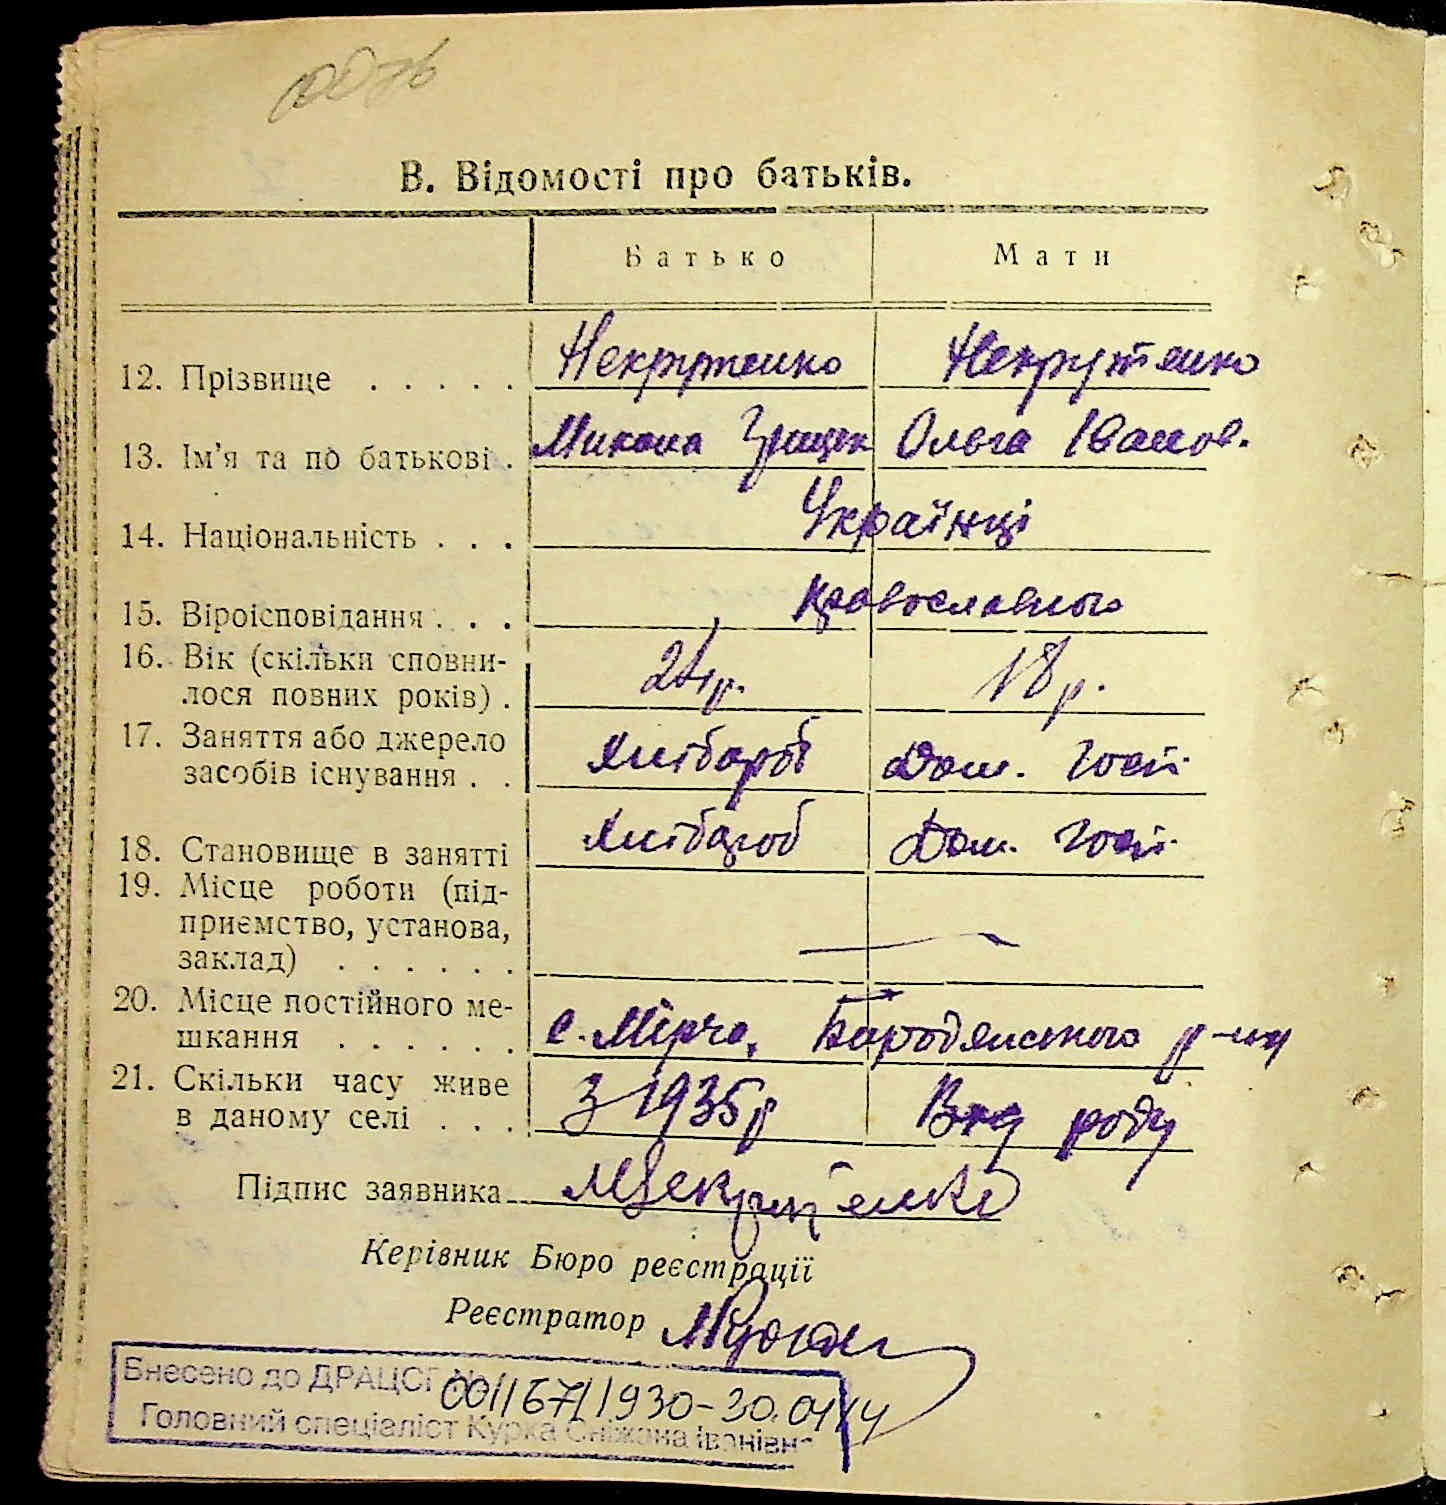 В. Відомості про батьків.
Батько Мати
12. Прізвище . . . . . Некрутенко Некрутенко
13. Ім'я та по батькові . Микола Грицьк Ольга Іванов.
14. Національність . . . Українці
15. Віроісповідання . . . православного
16. Вік (скільки сповни-
лося повних років) . 21р. 18р.
17. Заняття або джерело
засобів існування . . Хлібороб Дом. Госп.
18. Становище в занятті Хлібороб Дом. Госп.
19. Місце роботи (під-
приємство, установа,
заклад) . . . . . . —
20. Місце постійного ме-
шкання . . . . . . с. Мірча, Бородянського р-ну
21. Скільки часу живе
в даному селі . . . З 1935р Від роду
Підпис заявника МНекрутенко
Керівник Бюро реєстрації
Реєстратор
Внесено до ДРАЦСГ № 001167/1930-30.01.14
Головний спеціаліст Курка Сніжана Іванівна